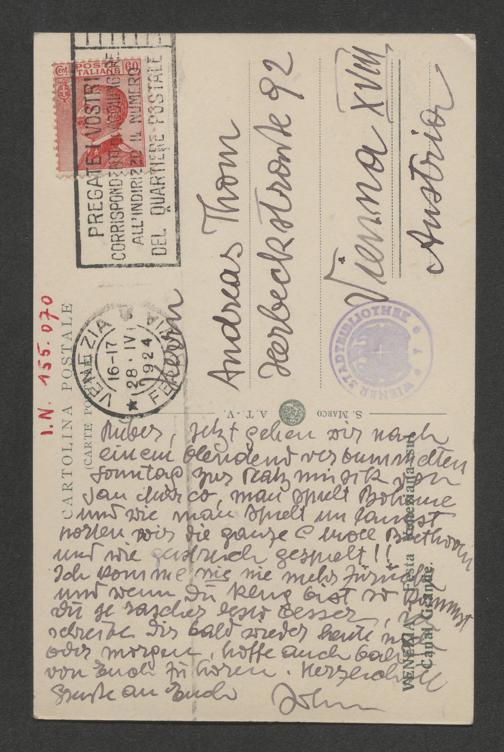 POSTE ITALIANE
60
PREGATE I VOSTRI
CORRISPONDENTI
ALL'INDIRIZZO IL NUMERO
DEL QUARTIERE POSTALE
VENEZIA
16-17
28·IV
1924
FERROVIA
Herrn
Andreas Thom
Herbeckstrasse 92
Vienna XVIII
Austria
WIENER STADTBIBLIOTHEK
I.N. 155.070
CARTOLINA POSTALE
(CARTE POSTALE)
S. MARCO A. T. - V.
VENEZIA - Festa Veneziana sul
Canal Grande.
Lieber, jetzt gehen wir nach
einem blendend verbummelten
Sonntag zur Platzmusik von
San Marco, man spielt Boheme
und wie man spielt
wir die ganze C moll Beethoven
und wie gespielt!!
Ich komme nie nie mehr zurück
und wenn Du klug bist so kommst
du je rascher desto besser, ich
schreibe Dir bald wieder heute
oder morgen, hoffe auch bald
von Euch zu hören. Herzlichste
Grüße an Euch
John